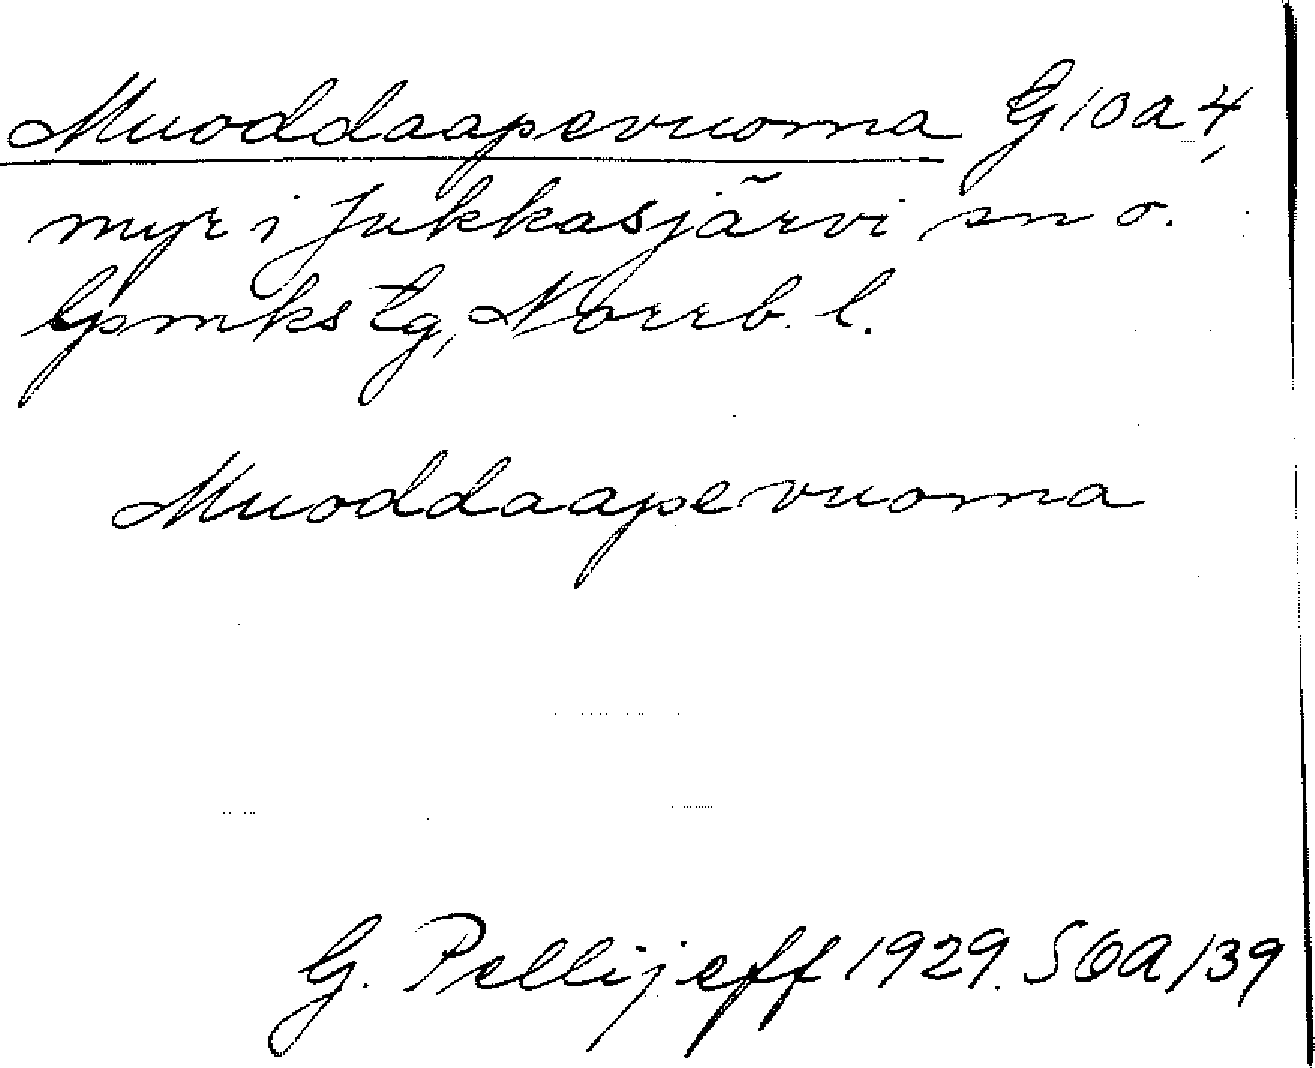 Muoddaapevuoma G10a4,
myr i Jukkasjärvi sn o.
Lpmks tg, Norrb. l.
Muoddaapevuoma
G. Pellijeff 1929. SOA/39